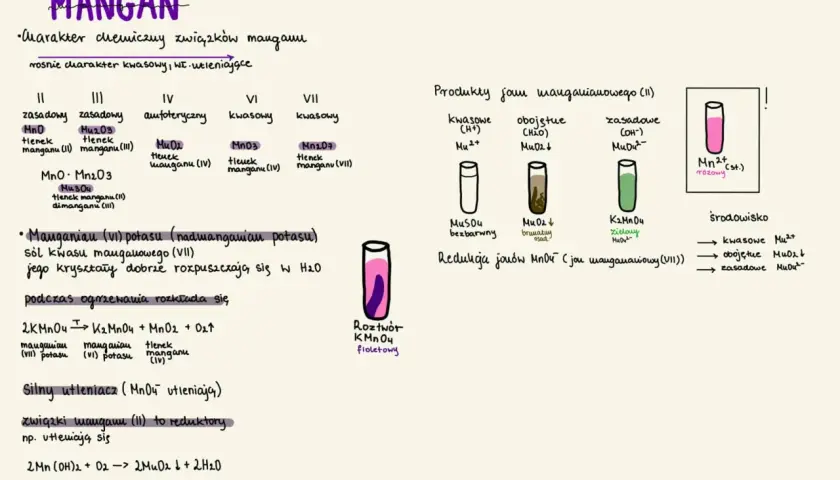 MANGAN
•Charakter chemiczny związków manganu
rośnie charakter kwasowy, wł. utleniające
II III IV VI VII
zasadowy zasadowy amfoteryczny kwasowy kwasowy
MnO Mn2O3 MnO2 MnO3 Mn2O7
tlenek manganu (II)
tlenek manganu (III)
tlenek manganu (IV)
tlenek manganu (IV)
tlenek manganu (VII)
MnO · Mn2O3
Mn3O4
tlenek manganu (II)
dimanganu (III)
• Manganian (VI) potasu (nadmanganian potasu)
sól kwasu manganowego (VII)
jego kryształy dobrze rozpuszczają się w H2O
podczas ogrzewania rozkłada się
2KMnO4 T→ K2MnO4 + MnO2 + O2↑
manganian (VII) potasu
manganian (VI) potasu
tlenek manganu (IV)
Silny utleniacz (MnO4⁻ utleniają)
związki manganu (II) to reduktory
np. utleniają się
2Mn(OH)2 + O2 —> 2MnO2 ↓ + 2H2O
Roztwór
KMnO4
fioletowy
Produkty jonu manganianowego (II)
kwasowe obojętne zasadowe
(H+) (H2O) (OH⁻)
Mn²⁺ MnO2↓ MnO4²⁻
MnSO4 MnO2 ↓ K2MnO4
bezbarwny brunatny zielony
osad MnO4²⁻
Mn²⁺(st.)
różowy
!
Redukcja jonów MnO4⁻ (jon manganianowy (VII))
środowisko
→ kwasowe Mn²⁺
→ obojętne MnO2↓
→ zasadowe MnO4²⁻